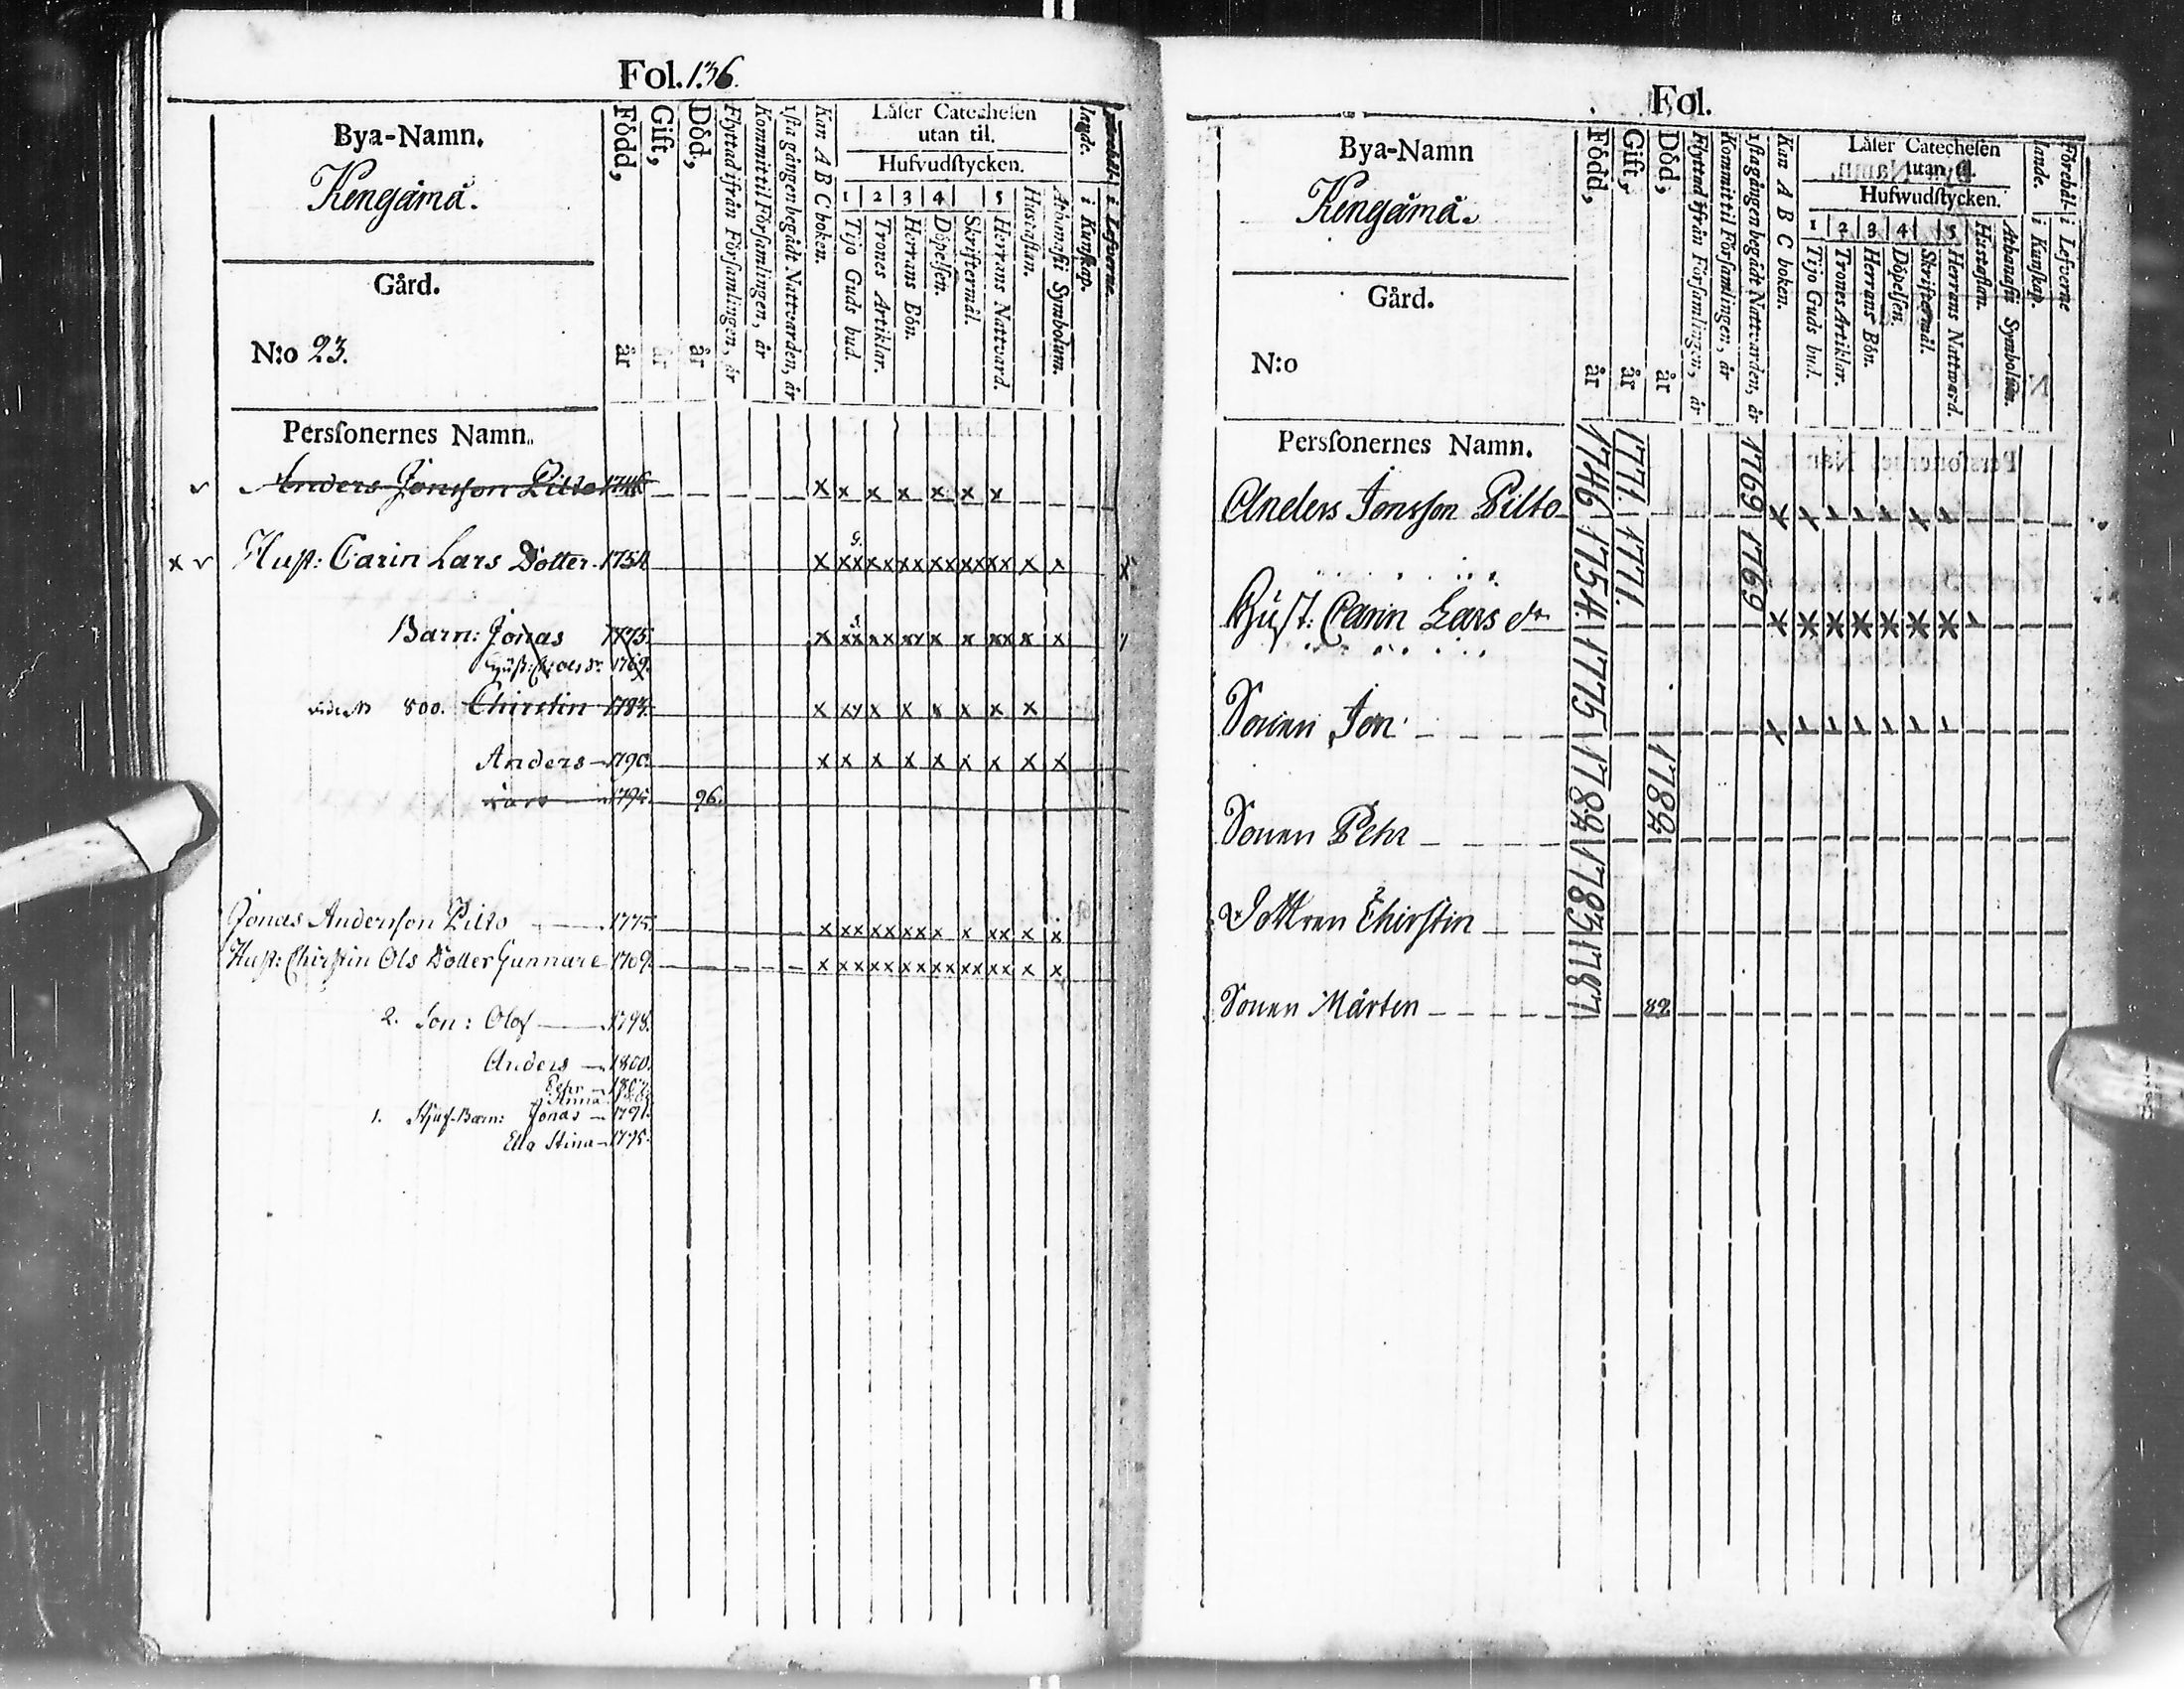 Fol. 136.
Bya-Namn.
Kengämä.
Gård.
N:o 23.
Persſonernes Namn.
Född, år
Gift, år
Död, år
Flyttad ifrån Förſamlingen, år
Kommit til Förſamlingen, år
1ſta gången begådt Nattvarden, år
Kan A B C boken.
Läſer Catecheſen utan til.
Hufvudſtycken.
1 2 3 4 5
Tijo Guds bud.
Trones Artiklar.
Herrans Bön.
Döpelſen.
Skriftermål.
Herrans Nattvard.
Hustaflan.
Athanaſii Symbolum.
lande.
i Kunſkap.
i Lefverne
Anders Jonsſon Pilto 1746 x x x x x x x
x v Huſt: Carin Lars Dotter 1754 x xx xx xx xx xx xx x x
Barn: Jonas 1775. x xx xx xx x x xx x x
1769.
800. Chirstin 1783. x xx x x x x x x
Anders 1790. x x x x x x x x x
Lars 1795. 96.
Jonas Andersſon Pilto 1775. x xx xx xx x x xx x x
Huſt: Chirſtin Ols Dotter Gunnare 1769. x xx xx xx xx xx xx x x
2. Son: Olof 1798.
Anders 1800.
Pehr
Anna
1. Stjuf-Barn: Jonas 1791.
Ella Stina 1795.
Fol.
Bya-Namn
Kengämä.
Gård.
N:o
Persſonernes Namn.
Född, år
Gift, år
Död, år
Flyttad ifrån Förſamlingen, år
Kommit til Förſamlingen, år
1ſta gången begådt Nattvarden, år
Kan A B C boken.
Läſer Catecheſen utan til.
Hufwudſtycken.
1 2 3 4 5
Tijo Guds bud.
Trones Artiklar.
Herrans Bön.
Döpelſen.
Skriftermål.
Herrans Nattward.
Hustaflan.
Athanaſii Symbolum.
Förehål-
lande.
i Kunſkap.
i Lefverne
Anders Jonsſon Pilto 1746 1771. 1769
Huſt: Carin Lars dr 1754 1771. 1769
Sonen Jon 1775
Sonen Pehr 1782 1782
Dottren Chirſtin 1783
Sonen Mårten 1787 89.